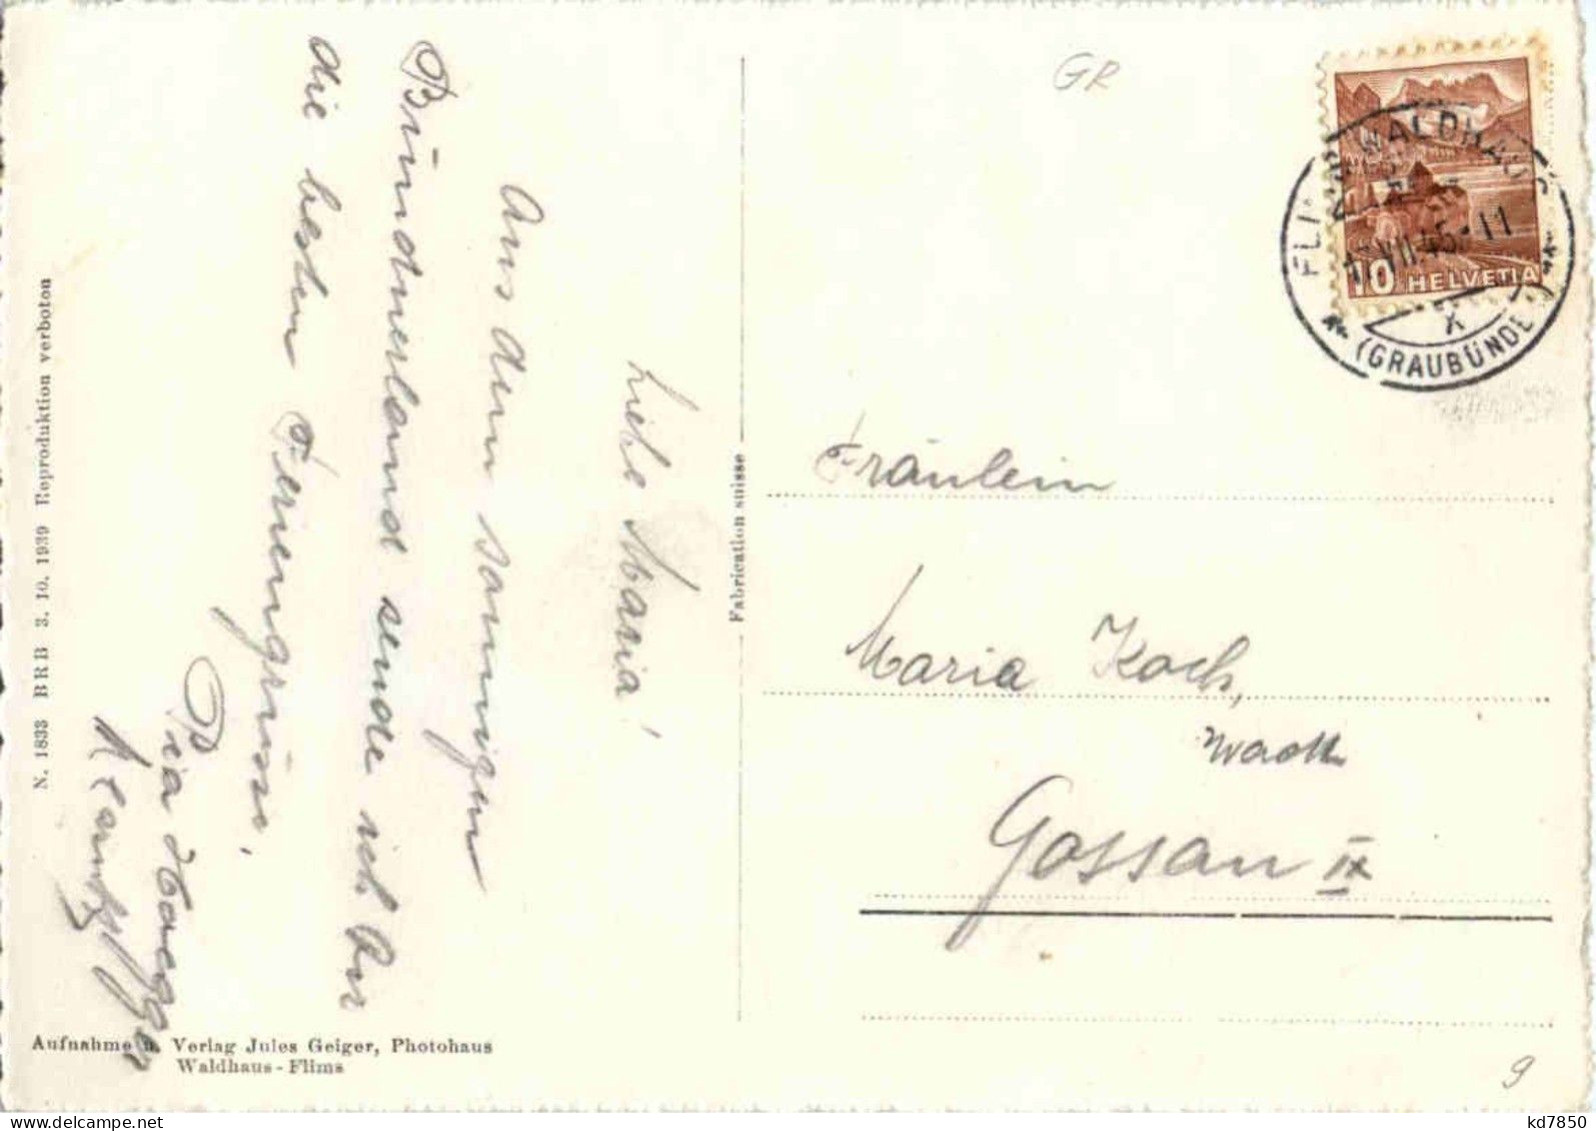 Liebe Maria!
Aus dem sonnigen
Bündnerland sende ich Dir
die besten Feriengrüsse.
Pia
N. 1833 BRB 3. 10. 1939 Reproduktion verboten
Aufnahme u. Verlag Jules Geiger, Photohaus
Waldhaus - Flims
Fabrication suisse
GR
FLIMS WALDHAUS
17.VII.45-11
10 HELVETIA
X
(GRAUBÜNDEN)
Fräulein
Maria Koch,
Gossau
9
kd7850